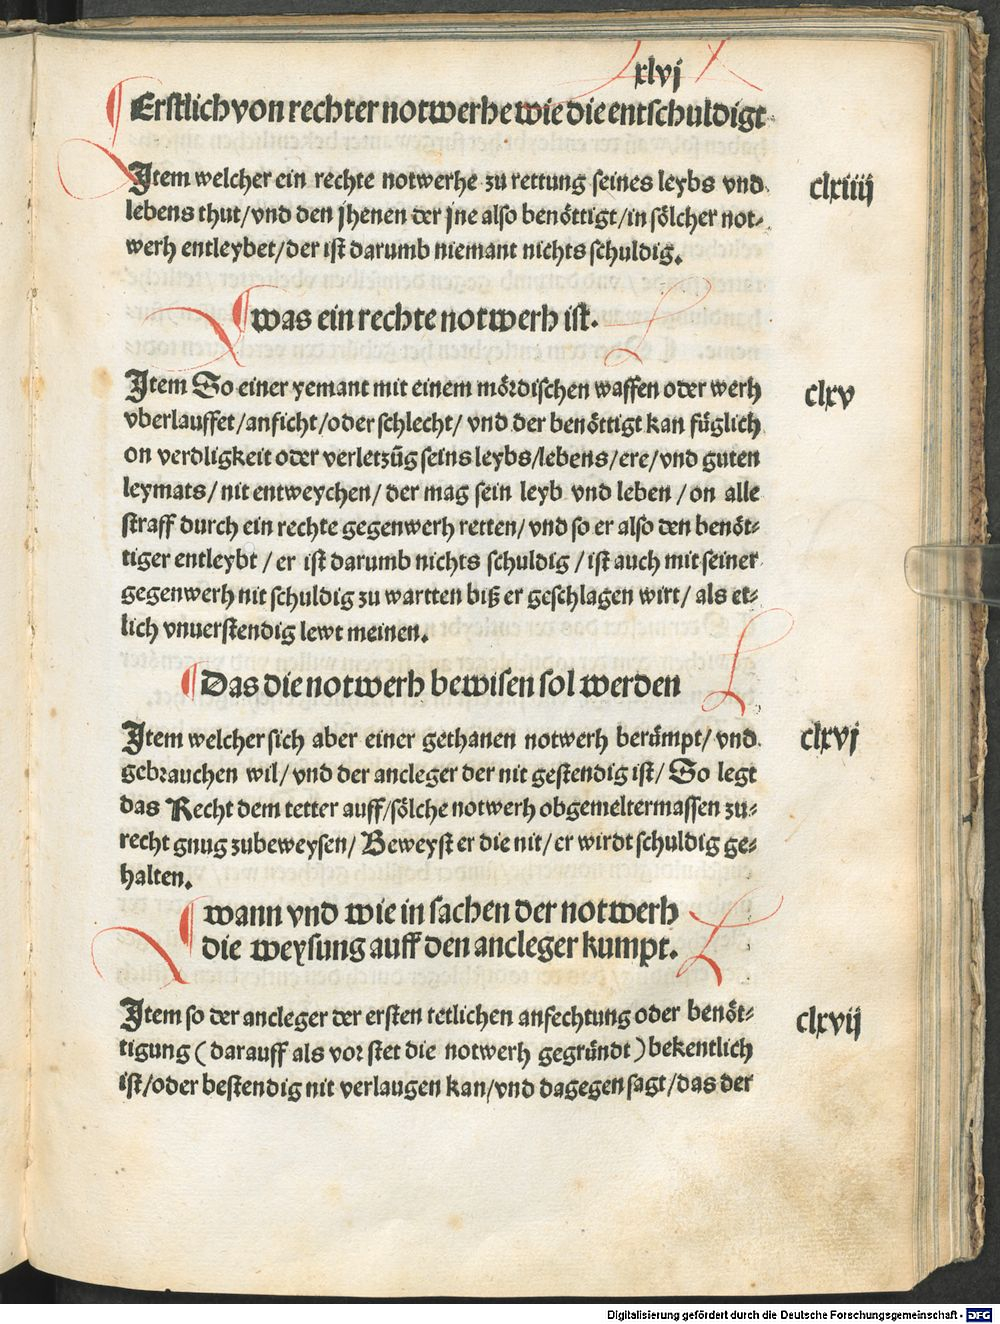 xlvj
Erstlich von rechter notwerhe wie die entschuldigt
Jtem welcher ein rechte notwerhe zu rettung seines leybs vnd
clxiiij
lebens thut/vnd den jhenen der jne also benöttigt/in sölcher not-
werh entleybet/der ist darumb niemant nichts schuldig.
was ein rechte notwerh ist.
Jtem So einer yemant mit einem mördischen waffen oder werh
clxv
vberlauffet/anficht/oder schlecht/ vnd der benöttigt kan füglich
on verdligkeit oder verletzūg seins leybs/lebens/ere/vnd guten
leymats/ nit entweychen/ der mag sein leyb vnd leben /on alle
straff durch ein rechte gegenwerh retten/ vnd so er also den benöt-
tiger entleybt / er ist darumb nichts schuldig /ist auch mit seiner
gegenwerh nit schuldig zu wartten biß er geschlagen wirt/ als et-
lich vnuerstendig lewt meinen.
Das die notwerh bewisen sol werden
Jtem welcher sich aber einer gethanen notwerh berämpt/ vnd
clxvj
gebrauchen wil/ vnd der ancleger der nit gestendig ist/ So legt
das Recht dem tetter auff/sölche notwerh obgemeltermassen zu-
recht gnug zubeweysen/ Beweyst er die nit/ er wirdt schuldig ge-
halten.
wann vnd wie in sachen der notwerh
die weysung auff den ancleger kumpt.
Jtem so der ancleger der ersten tetlichen anfechtung oder benöt-
clxvij
tigung (darauff als vor stet die notwerh gegründt) bekentlich
ist/oder bestendig nit verlaugen kan/vnd dagegen sagt/das der
Digitalisierung gefördert durch die Deutsche Forschungsgemeinschaft - DFG